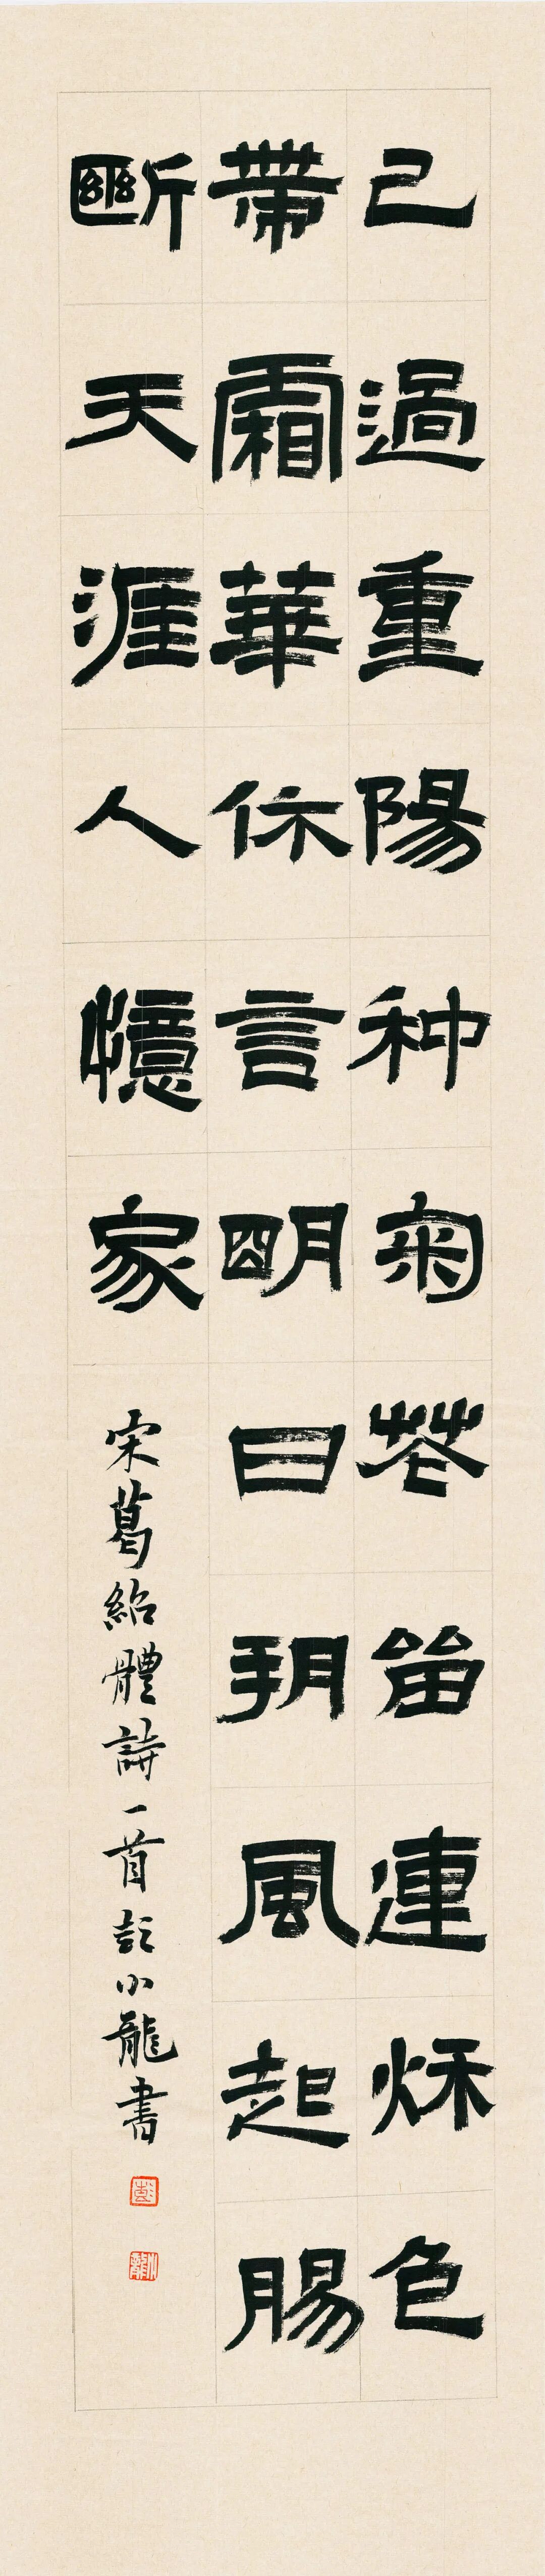 已過重陽种菊花留連秌色
帶霜華休言朙日朔風起腸
斷天涯人憶家
宋葛紹體詩一首彭小龍書
彭
小龍